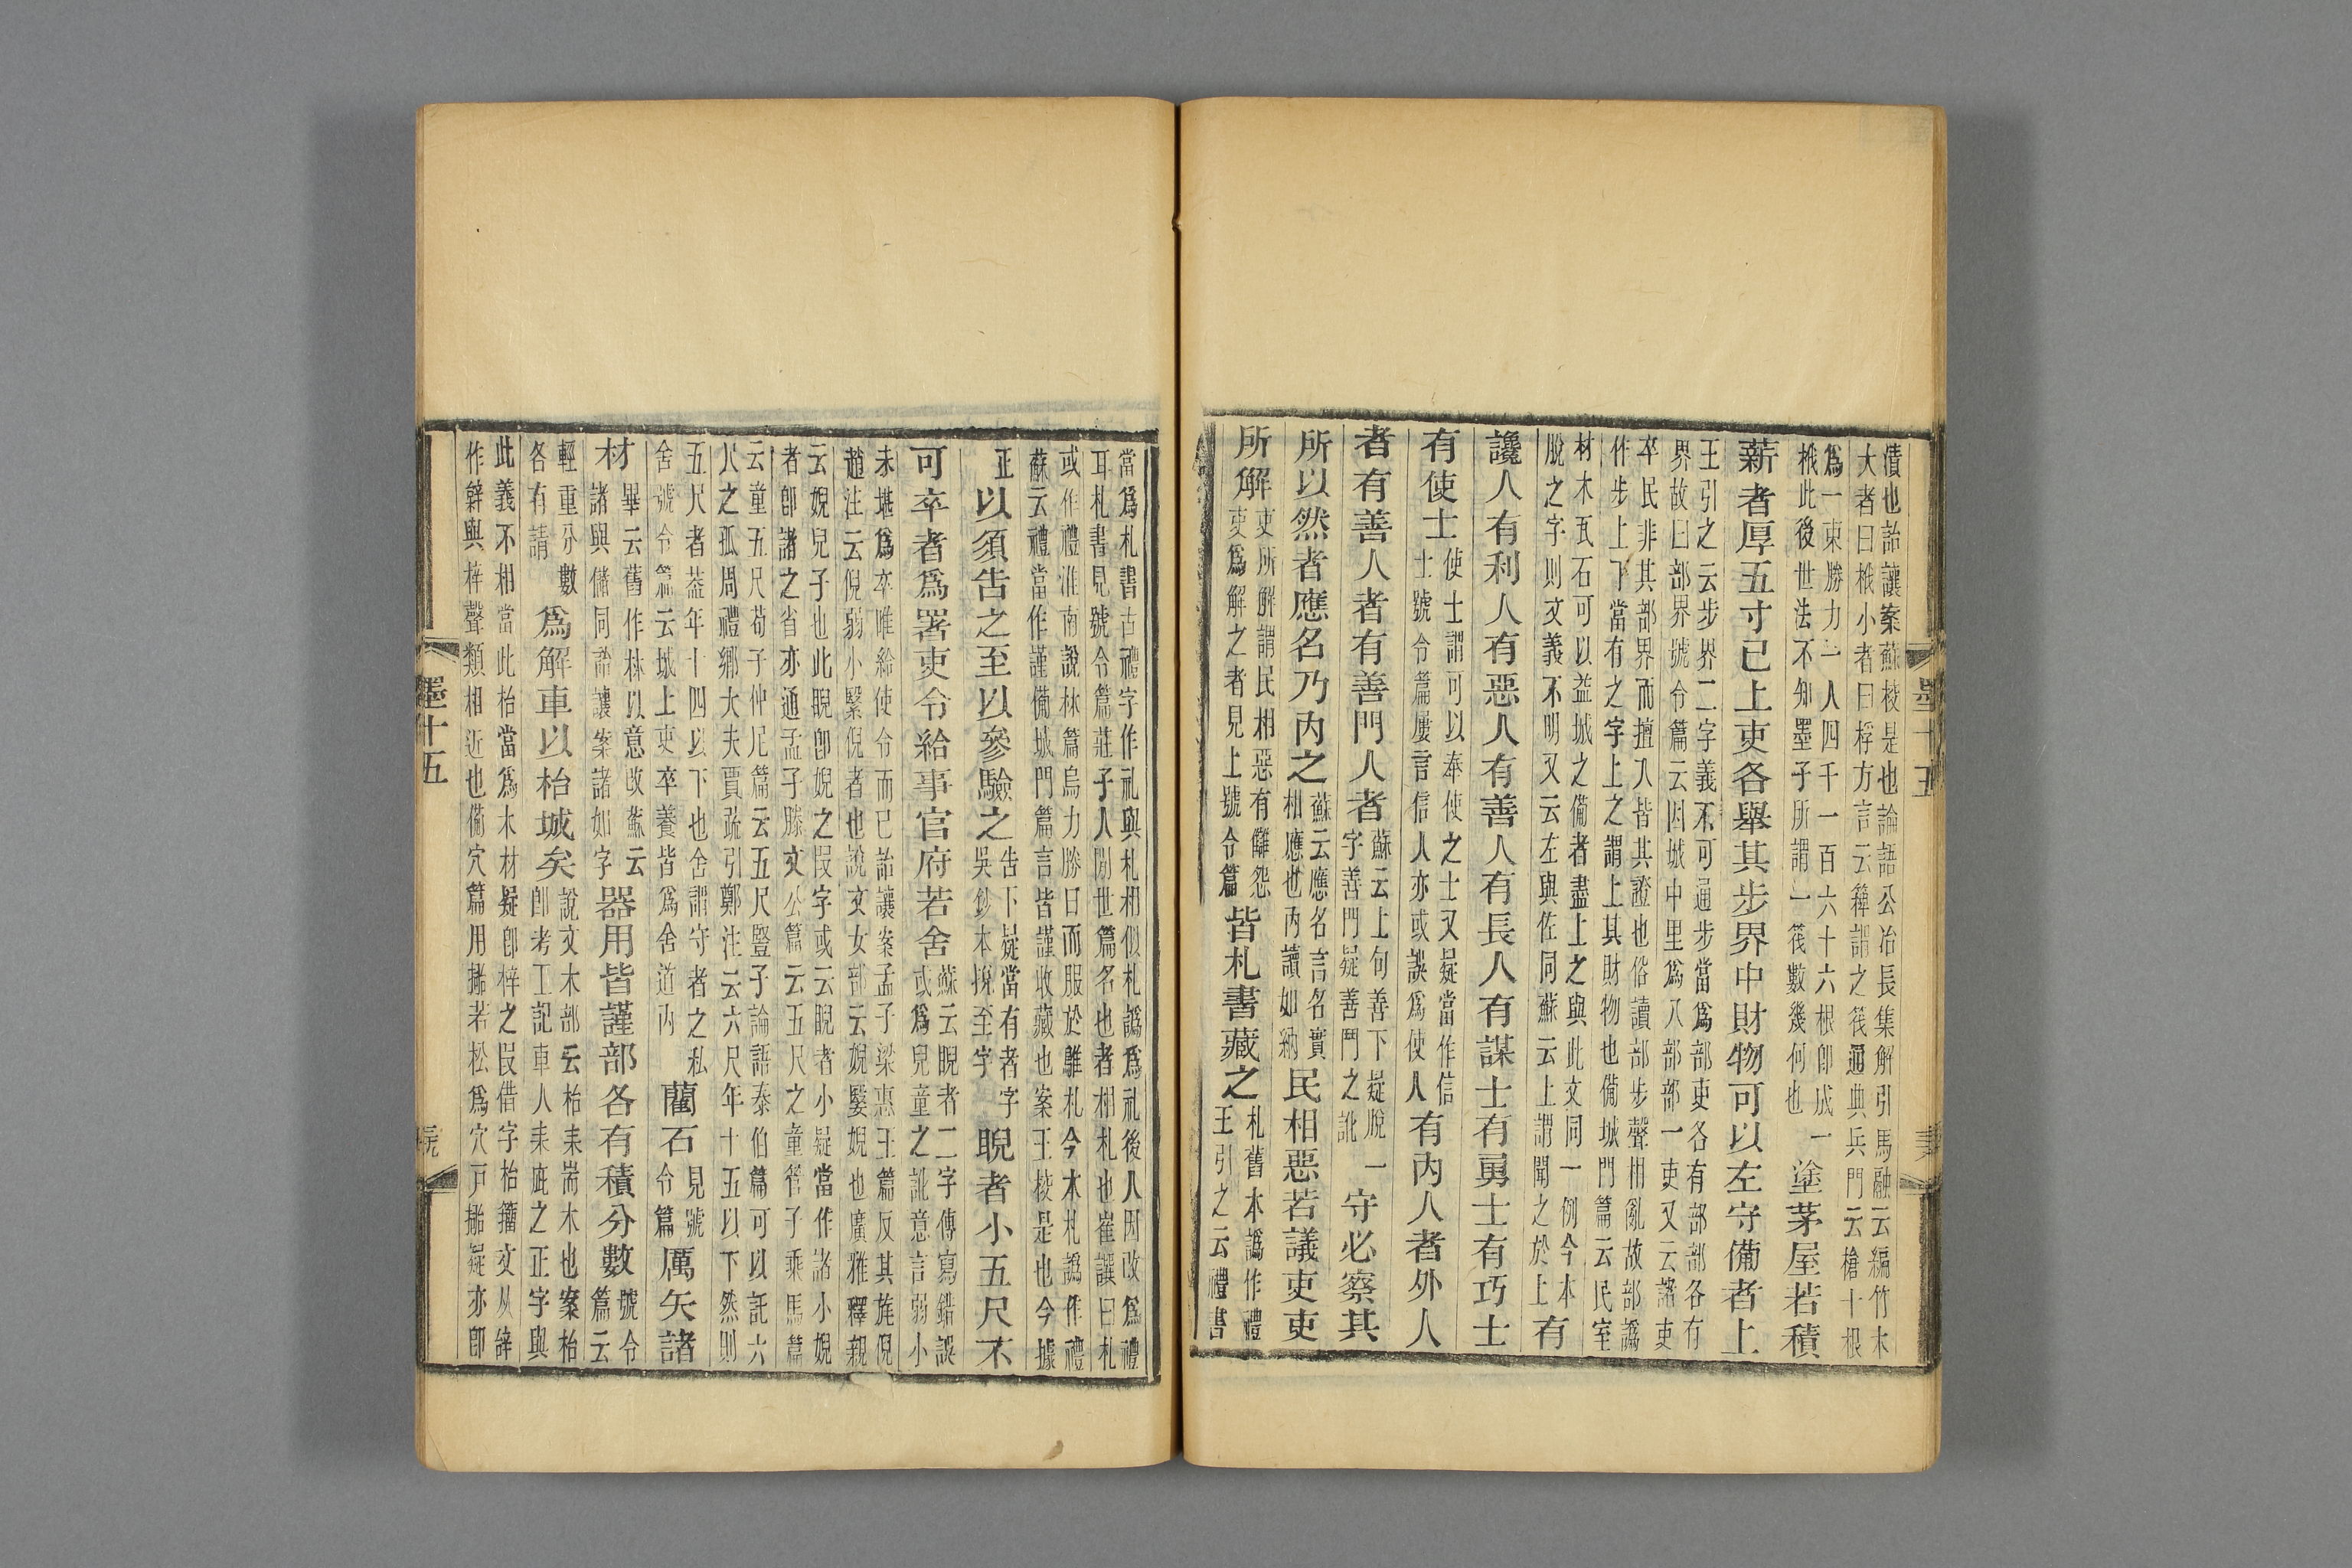 也詒讓案蘇校是也論語公冶長集解引馬融云編竹木
大者曰栰小者曰桴方言云簰謂之筏通典兵門云槍十根
爲一束勝力一人四千一百六十六根卽成一
栰此後世法不知墨子所謂一筏數幾何也
塗茅屋若積
薪者厚五寸已上吏各舉其步界中財物可以左守備者上
王引之云步界二字義不可通步當爲部吏各有部部各有
界故曰部界號令篇云因城中里爲八部部一吏又云諸吏
卒民非其部界而擅入皆其證也俗讀部步聲相亂故部譌
作步上下當有之字上之謂上其財物也備城門篇云民室
材木瓦石可以益城之備者盡上之與此文同一例今本
脫之字則文義不明又云左與佐同蘇云上謂聞之於上
有
讒人有利人有惡人有善人有長人有謀士有勇士有巧士
有使士
使士謂可以奉使之士又疑當作信
士號令篇屢言信人亦或誤爲使人
有內人者外人
者有善人者有善門人者
蘇云上句善下疑脫一
字善門疑善鬥之訛
守必察其
所以然者應名乃內之
蘇云應名言名實
相應也內讀如納
民相惡若議吏吏
所解
吏所解謂民相惡有讎怨
吏爲解之者見上號令篇
皆札書藏之
札舊本譌作禮
王引之云禮書
當爲札書古禮字作礼與札相似札譌爲礼後人因改爲禮
耳札書見號令篇莊子人閒世篇名也者相札也崔譔曰札
或作禮淮南說林篇烏力勝日而服於鵻札今本札譌作禮
蘇云禮當作謹備城門篇言皆謹收藏也案王校是也今據
正
以須告之至以參驗之
告下疑當有者字
吳鈔本挩至字
睨者小五尺不
可卒者爲署吏令給事官府若舍
蘇云睨者二字傳寫錯誤
或爲兒童之訛意言弱小
未堪爲卒唯給使令而已詒讓案孟子梁惠王篇反其旄倪
趙注云倪弱小繄倪者也說文女部云婗嫛婗也廣雅釋親
云婗兒子也此睨卽婗之叚字或云睨者小疑當作諸小婗
者卽諸之省亦通孟子滕文公篇云五尺之童管子乘馬篇
云童五尺荀子仲尼篇云五尺豎子論語泰伯篇可以託六
尺之孤周禮鄉大夫賈疏引鄭注云六尺年十五以下然則
五尺者蓋年十四以下也舍謂守者之私
舍號令篇云城上吏卒養皆爲舍道內
藺石
見號
令篇
厲矢諸
材
畢云舊作林以意改蘇云
諸與儲同詒讓案諸如字
器用皆謹部各有積分數
號令
篇云
輕重分數
各有請
爲解車以枱城矣
說文木部云枱耒耑木也案枱
卽考工記車人耒庛之正字與
此義不相當此枱當爲木材疑卽梓之叚借字枱籀文从辝
作𨐡與梓聲類相近也備穴篇用㧪若松爲穴戶㧪疑亦卽
墨十五
墨十五